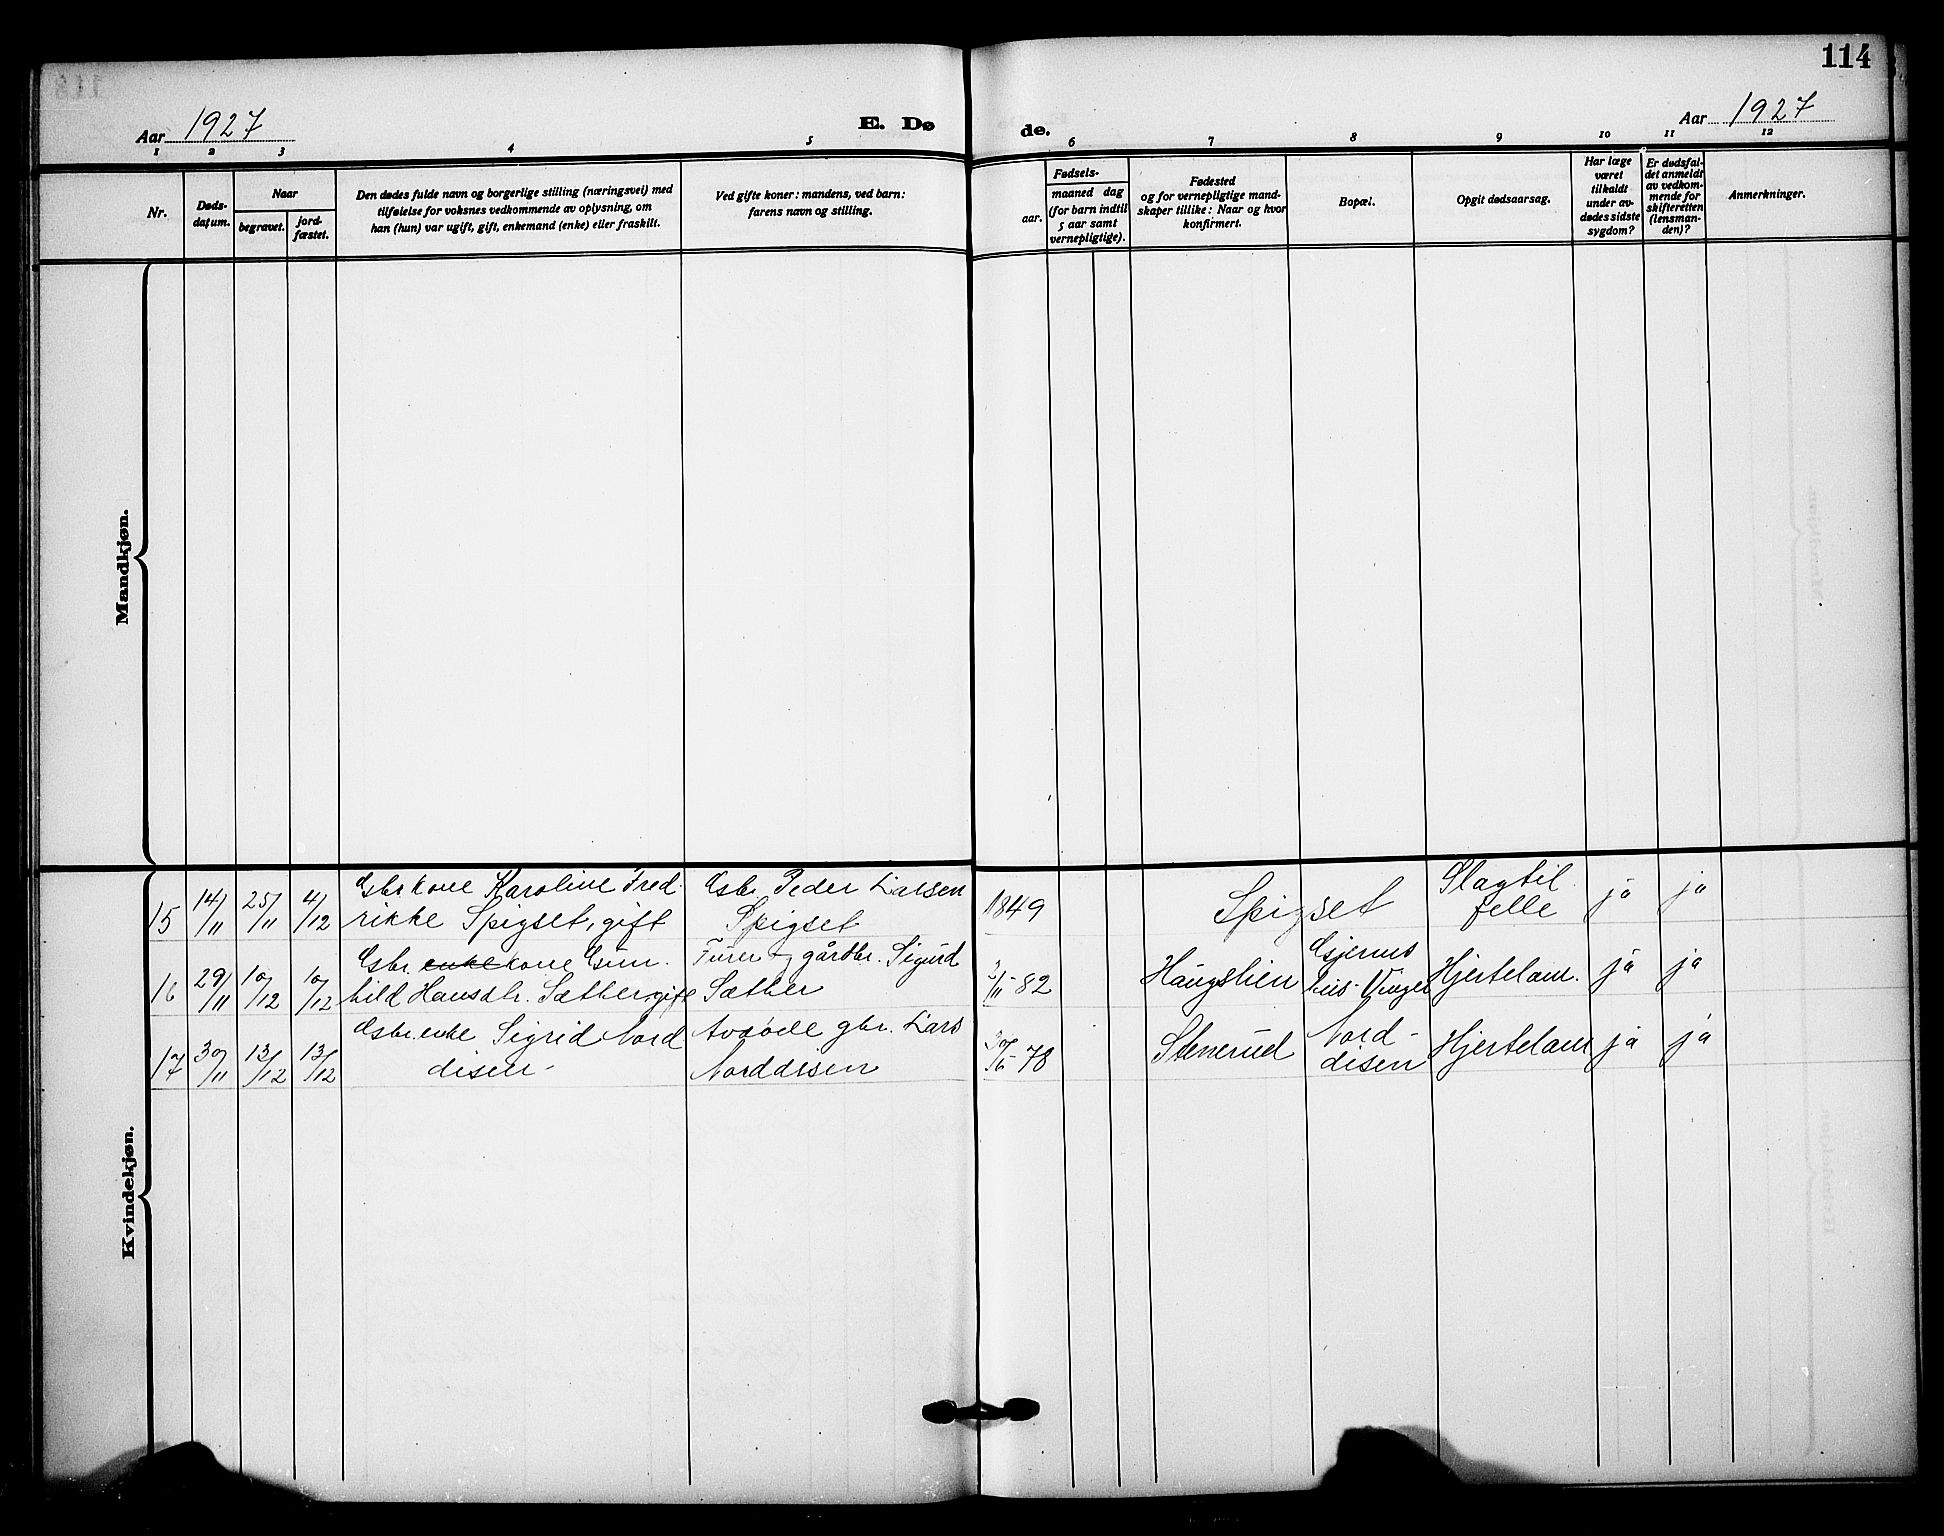 114
Aar 1927
E. Dø
de.
Aar 1927
1 2 3 4 5
6 7 8 9 10 11 12
Nr.
Døds-
datum.
Naar
begravet.
jord-
fæstet.
Den dødes fulde navn og borgerlige stilling (næringsvei) med
tilføielse for voksnes vedkommende av oplysning, om
han (hun) var ugift, gift, enkemand (enke) eller fraskilt.
Ved gifte koner: mandens, ved barn:
farens navn og stilling.
Fødsels-
aar.
maaned dag
(for barn indtil
5 aar samt
vernepligtige).
Fødested
og for vernepligtige mand-
skaper tillike: Naar og hvor
konfirmert.
Bopæl.
Opgit dødsaarsag.
Har læge
været
tilkaldt
under av-
dødes sidste
sygdom?
Er dødsfal-
det anmeldt
av vedkom-
mende for
skifteretten
(lensman-
den)?
Anmerkninger.
Mandkjøn.
Kvindekjøn.
15 14/11 25/11 4/12
Gbr kone Karoline Fred.
rikke Spigset, gift
Gbr. Peder Larsen
Spigset
1849
Spigset
Slagtil
felle
ja ja
16 29/11 10/12 10/12
Gbr. enke kone Gun.
hild Hansdtr. Sæther, gift
Furer og gårdbr. Sigurd
Sæther
2/11-82
Haugslien
Hjertelam.
ja ja
17 30/11 13/12 13/12
Gbr. enke Sigrid Nord
disen -
Avdöde gbr. Lars
Norddisen
-78
Stenerud
Nord-
disen
Hjertelam
ja ja